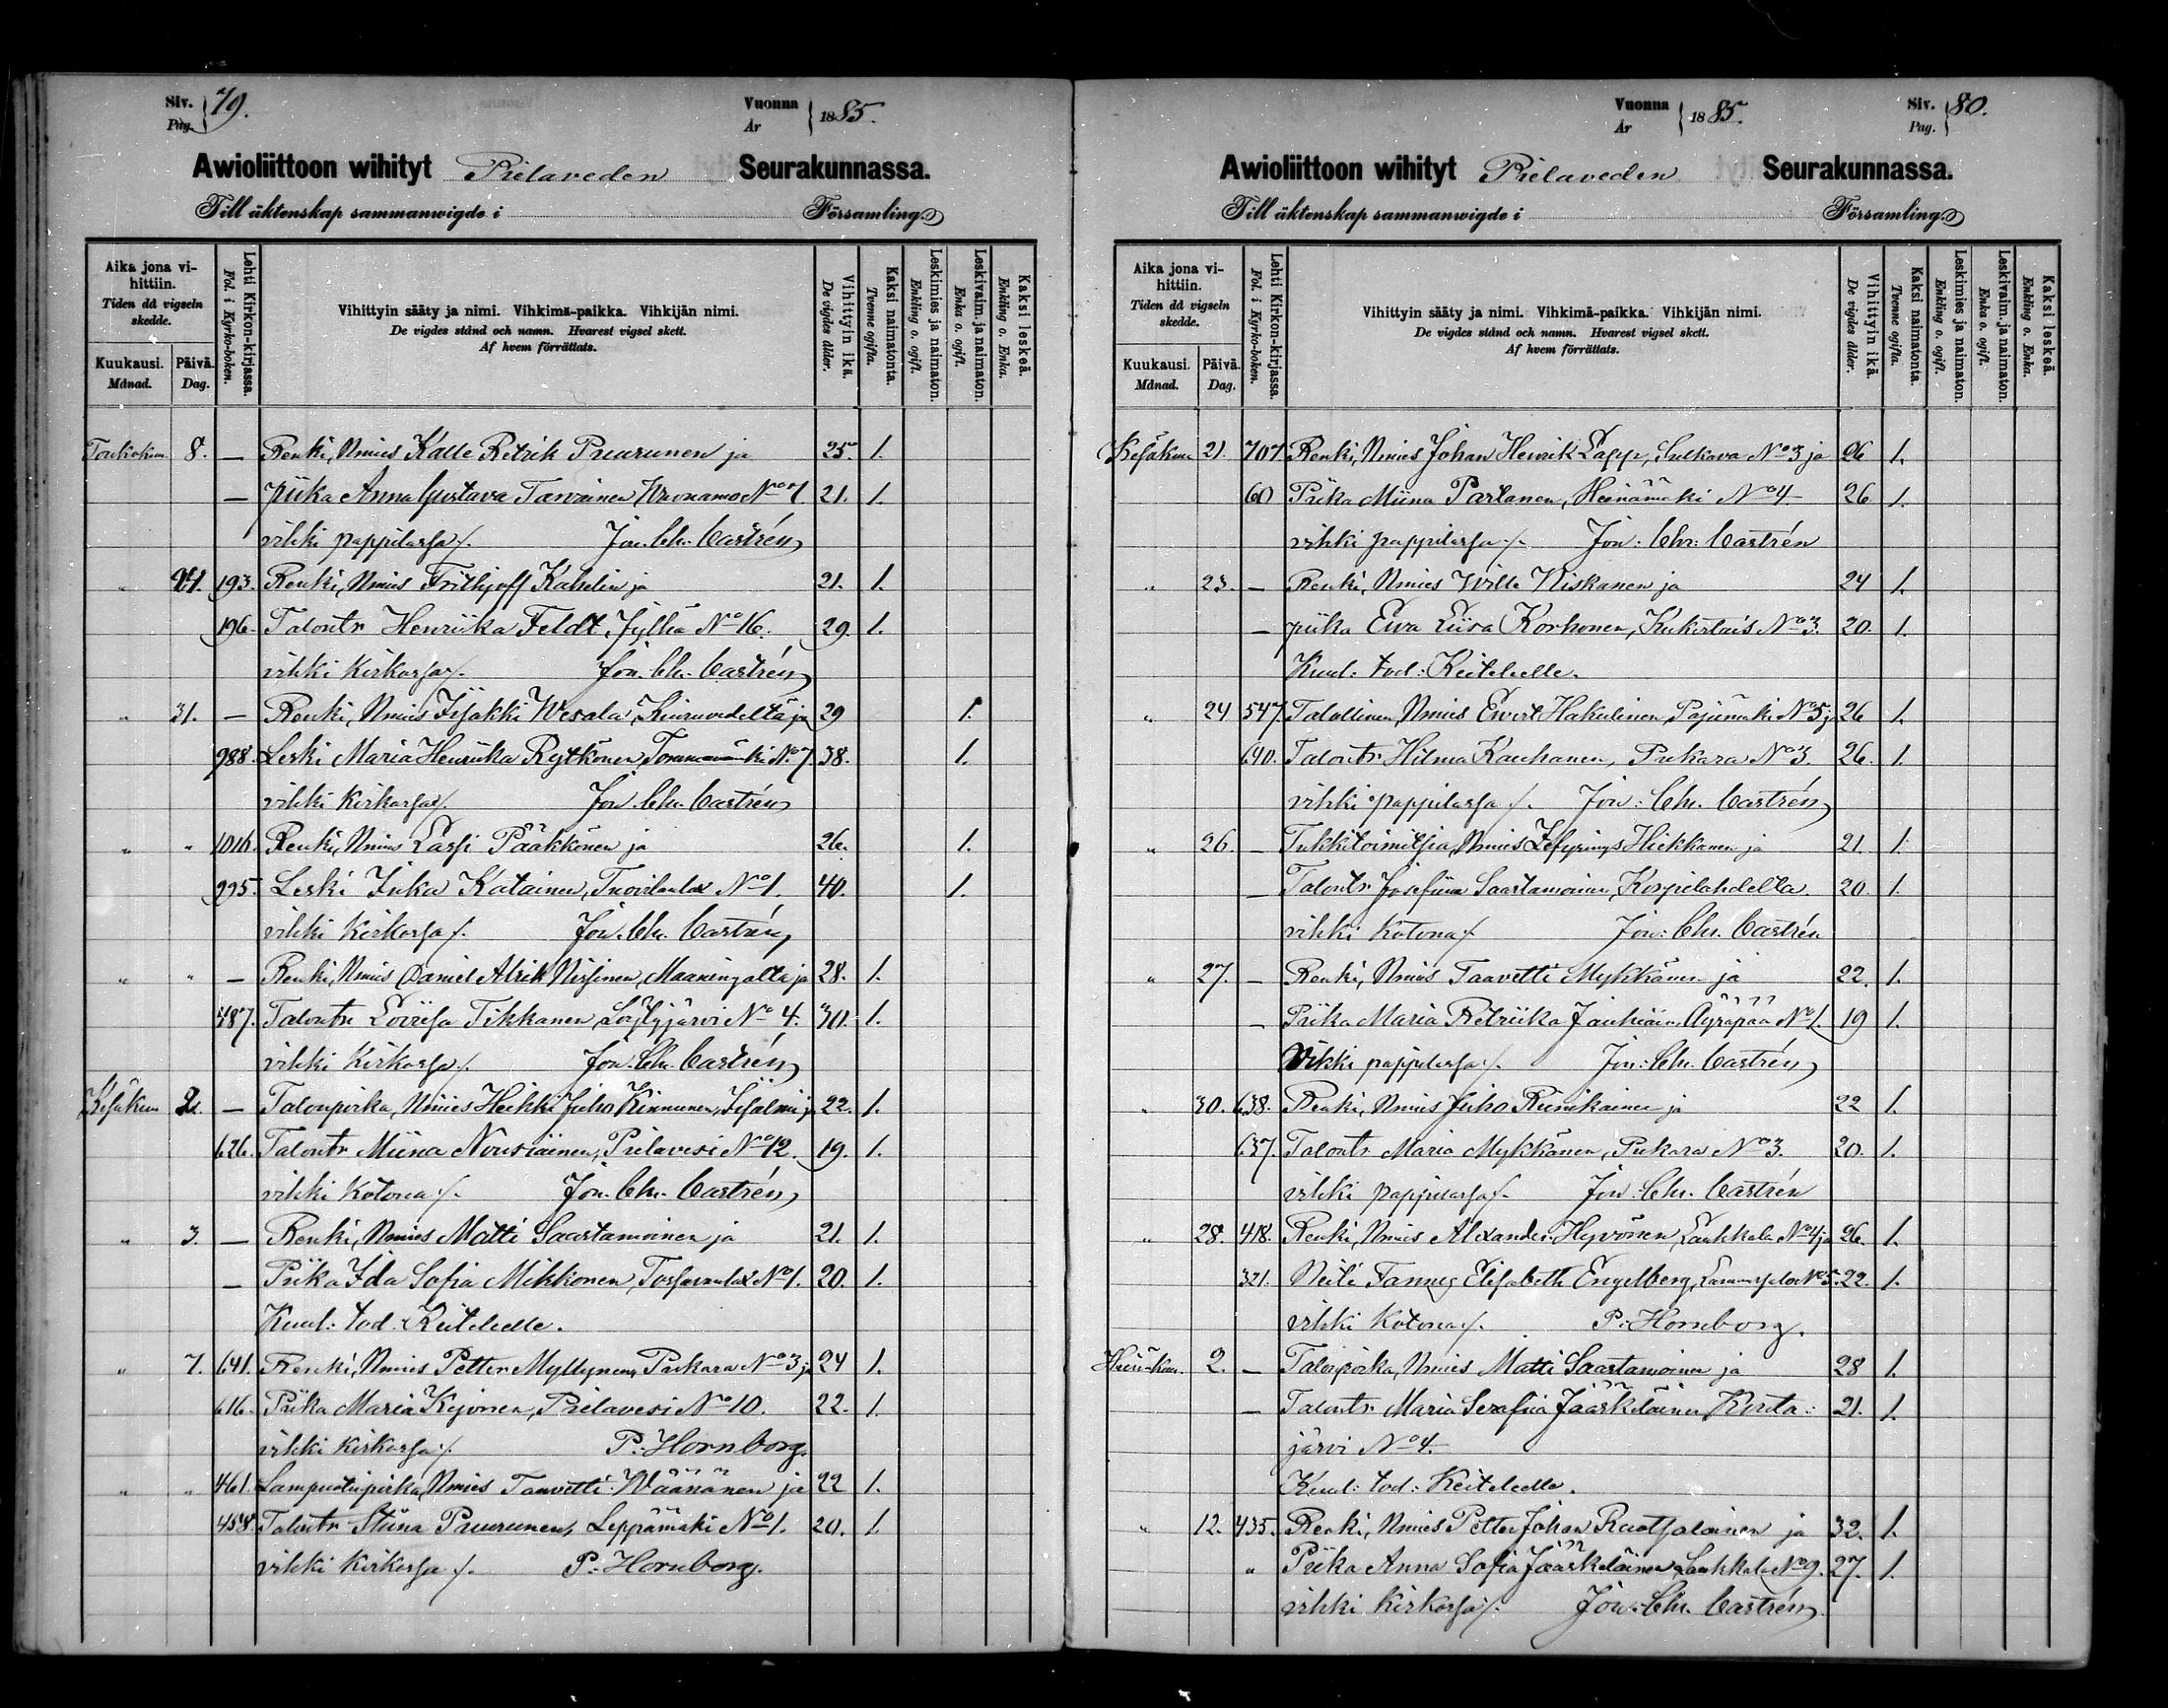 Siv. Pag. 79. Vuonna År 1885.
Awioliittoon wihityt Pielaveden Seurakunnassa.
Till äktenskap sammanwigde i Församling.
Aika jona vihittiin. Tiden då vigseln skedde. Kuukausi. Månad. Päivä. Dag.
Lehti Kirkon-kirjassa. Fol. i Kyrko-boken.
Vihittyin sääty ja nimi. Vihkimä-paikka. Vihkijän nimi.
De vigdes stånd och namn. Hvarest vigsel skett.
Af hvem förrättats.
Vihittyin ikä. De vigdes ålder.
Kaksi naimatonta. Tvenne ogifta.
Leskimies ja naimaton. Enkling o. ogift.
Leskivaim. ja naimaton. Enka o. ogift.
Kaksi leskeä. Enkling o. Enka.
Toukokuu 8. — Renki, Nmies Kalle Petrik Puurunen ja 25. 1.
— piika Anna Gustava Tarvainen No 7. 21. 1.
vihki pappilassa /. Jon. Chr. Castrén
„ 24. 193. Renki, Nmies Frithjoff Kahelin ja 21. 1.
196. Talontr Henriika Feldt, Jylhä No 16. 29. 1.
vihki Kirkossa /. Jon. Chr. Castrén
„ 31. — Renki, Nmies Iisakki Wesala, Kiuruvedeltä ja 29 1.
988. Leski Maria Henriika Rytkönen, Tommonmäki No 7. 38. 1.
vihki Kirkossa /. Jon. Chr. Castrén
„ „ 1016. Renki, Nmies Lassi Pääkkönen ja 26. 1.
995. Leski Inka Katainen, Tuovilanlax No 1. 40. 1.
vihki Kirkossa /. Jon. Chr. Castrén
„ „ — Renki, Nmies Daniel Alrik Nissinen, Maaningalta ja 28. 1.
487. Talontr Lovisa Tikkanen, Säylyjärvi No 4. 30. 1.
vihki Kirkossa /. Jon. Chr. Castrén
Kesäkuu 2. — Talonpoika, Nmies Heikki Juho Kinnunen, Iisalmi ja 22. 1.
626. Talontr Miina Nousiainen, Pielavesi No 12. 19. 1.
vihki Kotona /. Jon. Chr. Castrén
„ 3. — Renki, Nmies Matti Saastamoinen ja 21. 1.
— Piika Ida Sofia Mikkonen, Tossavanlax No 1. 20. 1.
Kuul: tod: Keiteleelle.
„ 7. 641. Renki, Nmies Petter Myllynen, Pukara No 3 ja 24 1.
616. Piika Maria Keijonen, Pielavesi No 10. 22. 1.
vihki Kirkossa /. P. Hornborg.
„ „ 461. Lampuotinpoika, Nmies Taavetti Wäänänen ja 22 1.
458. Talontr Stiina Puurunen, Leppämäki No 1. 20. 1.
vihki Kirkossa /. P. Hornborg.
Vuonna År 1885. Siv. Pag. 80.
Awioliittoon wihityt Pielaveden Seurakunnassa.
Till äktenskap sammanwigde i Församling.
Aika jona vihittiin. Tiden då vigseln skedde. Kuukausi. Månad. Päivä. Dag.
Lehti Kirkon-kirjassa. Fol. i Kyrko-boken.
Vihittyin sääty ja nimi. Vihkimä-paikka. Vihkijän nimi.
De vigdes stånd och namn. Hvarest vigsel skett.
Af hvem förrättats.
Vihittyin ikä. De vigdes ålder.
Kaksi naimatonta. Tvenne ogifta.
Leskimies ja naimaton. Enkling o. ogift.
Leskivaim. ja naimaton. Enka o. ogift.
Kaksi leskeä. Enkling o. Enka.
Kesäkuu 21. 707 Renki, Nmies Johan Henrik Lapp, Sulkava No 3 ja 26 1.
60 Piika Miina Partanen, Heinämäki No 4 26 1.
vihki pappilassa /. Jon: Chr: Castrén
„ 23. — Renki, Nmies Wille Niskanen ja 24 1.
— piika Ewa Liisa Korhonen, No 3. 20. 1.
Kuul: tod: Keiteleelle.
„ 24 547. Talollinen, Nmies Ewert Hakulinen, Pajumäki No 5 ja 26 1.
690. Talontr Hilma Kauhanen, Pukara No 3. 26. 1.
vihki pappilassa /. Jon: Chr. Castrén
„ 26. — Tukkitoimitsia, Nmies Zefyrinus Hiekkanen ja 21. 1.
— Talontr Josefina Saastamoinen, Korpilahdelta 20. 1.
vihki Kotona /. Jon: Chr. Castrén
„ 27. — Renki, Nmies Taavetti Mykkänen ja 22. 1.
— Piika Maria Retriika Jauhiain, Äyräpää No 1. 19 1.
Vihki pappilassa /. Jon: Chr. Castrén
„ 30. 638. Renki, Nmies Juho Riinikainen ja 22 1.
637. Talontr Maria Mykkänen, Pukara No 3. 20. 1.
vihki pappilassa /. Jon: Chr. Castrén
„ 28. 418. Renki, Nmies Alexander Hyvönen, Laukkala No 4 ja 26. 1.
321. Neiti Fanny Elisabeth Engelberg, No 5. 22. 1.
vihki Kotona /. P. Hornborg.
Heinäkuu. 2. — Talonpoika, Nmies Matti Saastamoinen ja 28 1.
— Talontr Maria Serafiia Jääskeläinen Kouta- 21. 1.
järvi No 4.
Kuul: tod: Keiteleelle.
„ 12. 435. Renki, Nmies Petter Johan Ruotsalainen ja 32. 1.
„ Piika Anna Sofia Jääskeläinen, Laukkala No 9. 27. 1.
vihki Kirkossa /. Jon: Chr. Castrén